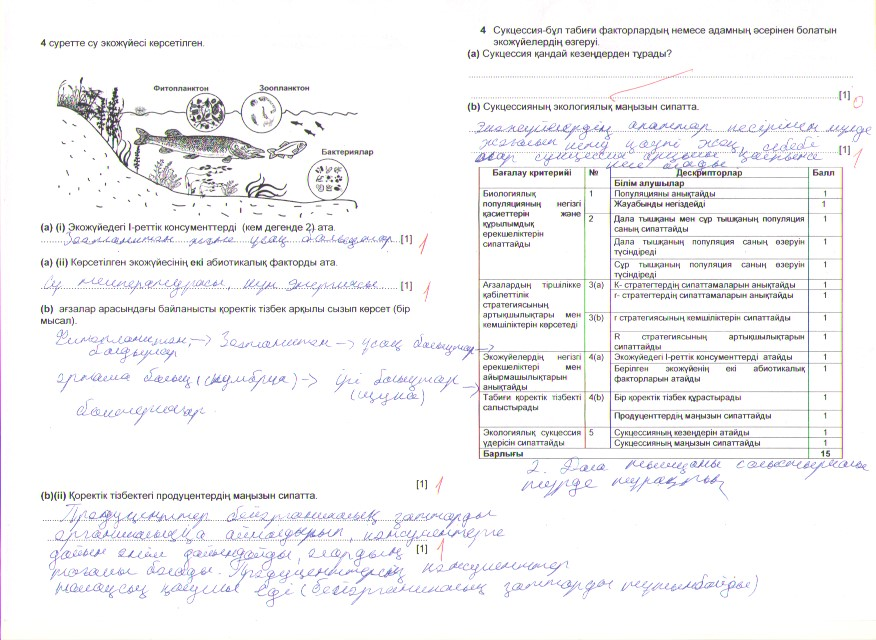 4 суретте су экожүйесі көрсетілген.
Фитопланктон
Зоопланктон
Бактериялар
(a) (i) Экожүйедегі I-реттік консументтерді (кем дегенде 2) ата.
Зоопланктон және ұсақ балықтар [1] 1
(a) (ii) Көрсетілген экожүйесінің екі абиотикалық факторды ата.
Су температурасы, күн энергиясы [1] 1
(b) ағзалар арасындағы байланысты қоректік тізбек арқылы сызып көрсет (бір
мысал).
Фитопланктон → Зоопланктон → ұсақ балықтар →
балдырлар
орташа балық (скумбрия) → ірі балықтар →
(щука)
бактериялар.
[1] 1
(b)(ii) Қоректік тізбектегі продуцентердің маңызын сипатта.
Продуценттер бейорганикалық заттарды
органикалыққа айналдырып, консументтерге
дайын өнім дайындайды, олардың [1] 1
тағамы болады. Продуценттерсіз консументтер
тамақсыз қалушы еді (бейорганикалық заттарды тұтынбайды)
4 Сукцессия-бұл табиғи факторлардың немесе адамның әсерінен болатын
экожүйелердің өзгеруі.
(a) Сукцессия қандай кезеңдерден тұрады?
[1] 0
(b) Сукцессияның экологиялық маңызын сипатта.
Экожүйелердің апаттар әсерінен мүлде
жоғалып кету қаупі жоқ, себебі
олар сукцессия арқылы қайтадан [1] 1
Бағалау критерийі № Дескрипторлар Балл
Білім алушылар
Биологиялық популяцияның негізгі қасиеттерін және құрылымдық ерекшеліктерін сипаттайды
1 Популяцияны анықтайды 1
Жауабынды негіздейді 1
2 Дала тышқаны мен сұр тышқанның популяция санының сипаттайды 1
Дала тышқанның популяция саның өзеруін түсіндіреді 1
Сұр тышқанның популяция саның өзеруін түсіндіреді 1
Ағзалардың тіршілікке қабілеттілік стратегиясының артықшылықтары мен кемшіліктерін көрсетеді
3(a) К- стратегтердің сипаттамаларын анықтайды 1
r- стратегтердің сипаттамаларын анықтайды 1
3(b) r стратегиясының кемшіліктерін сипаттайды 1
R стратегиясының артықшылықтарын сипаттайды 1
Экожүйелердің негізгі ерекшеліктері мен айырмашылықтарын анықтайды
4(a) Экожүйедегі I-реттік консументтерді атайды 1
Берілген экожүйенің екі абиотикалық факторларын атайды 1
Табиғи қоректік тізбекті салыстырады
4(b) Бір қоректік тізбек құрастырады 1
Продуценттердің маңызын сипаттайды 1
Экологиялық сукцессия үдерісін сипаттайды
5 Сукцессияның кезеңдерін атайды 1
Сукцессияның маңызын сипаттайды 1
Барлығы 15
2. Дала тышқаны салыстырмалы
түрде тұрақты